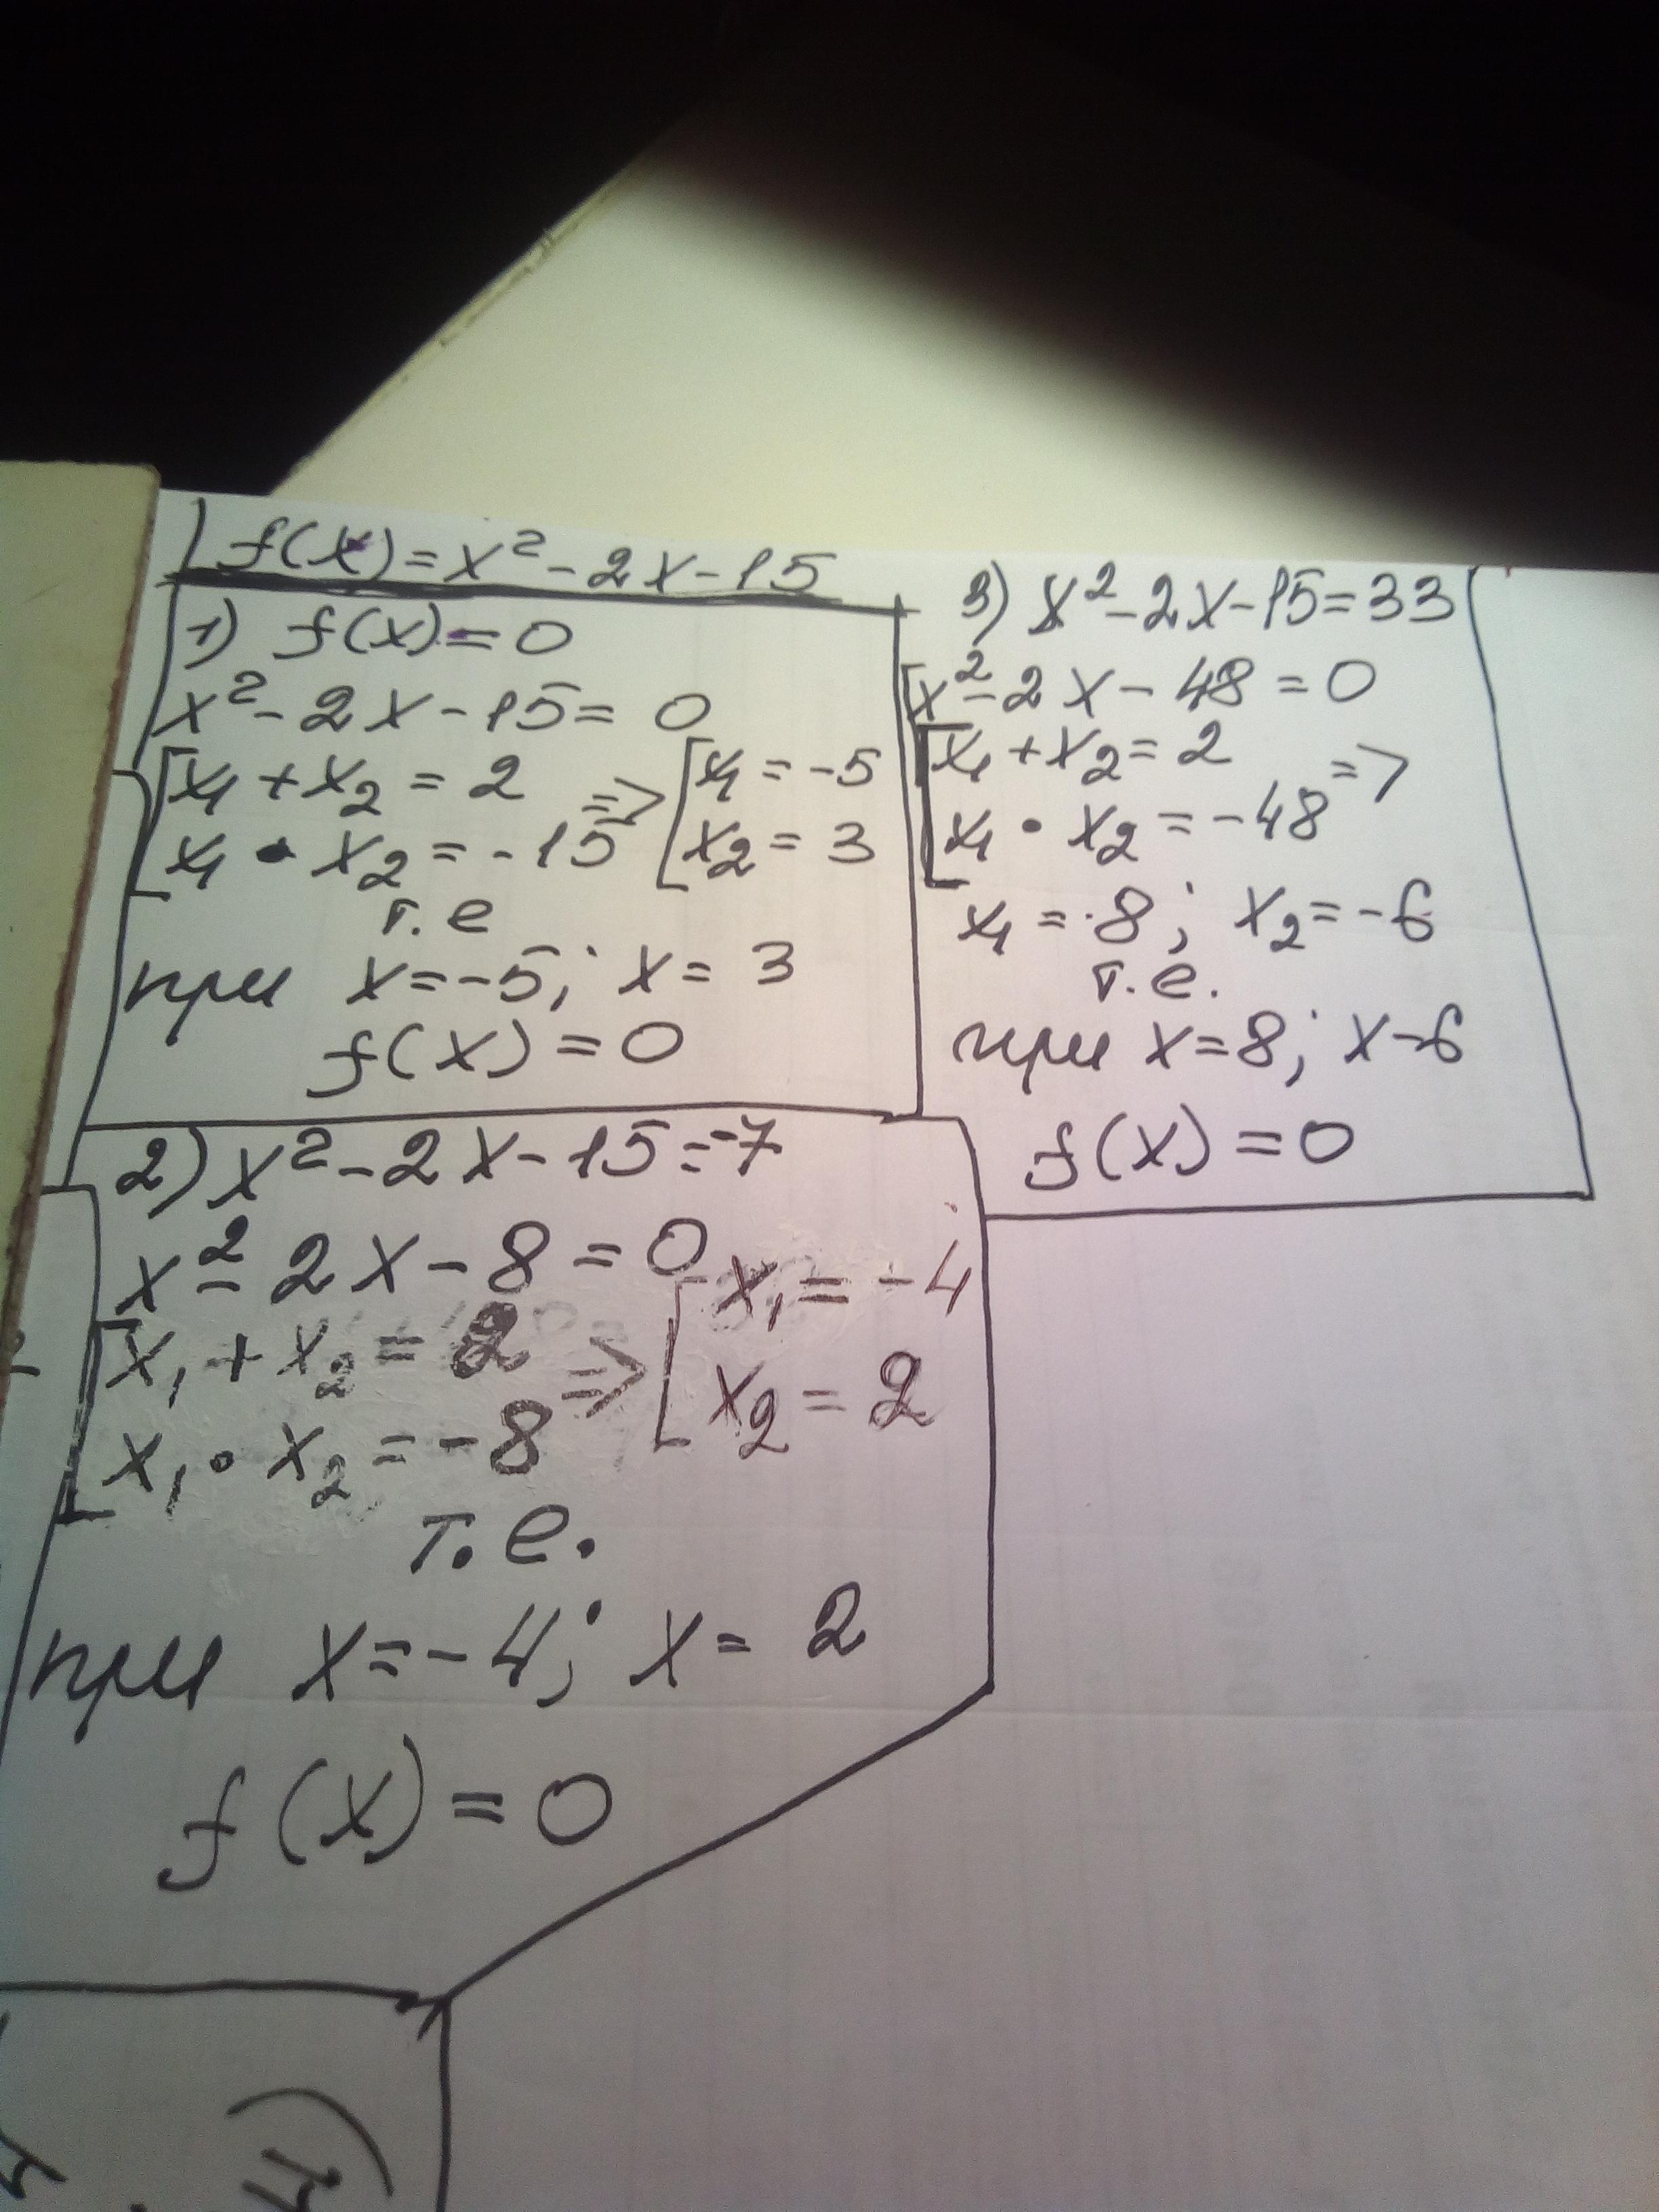 f(x)=x²-2x-15
1) f(x)=0
x²-2x-15=0
x₁+x₂=2
x₁•x₂=-15
=> x₁=-5
x₂=3
т.е
при x=-5; x=3
f(x)=0
2) x²-2x-15=-7
x²-2x-8=0
x₁+x₂=2
x₁•x₂=-8
=> x₁=-4
x₂=2
т.е.
при x=-4; x=2
f(x)=0
3) x²-2x-15=33
x²-2x-48=0
x₁+x₂=2
x₁•x₂=-48 =>
x₁=8; x₂=-6
т.е.
при x=8; x-6
f(x)=0